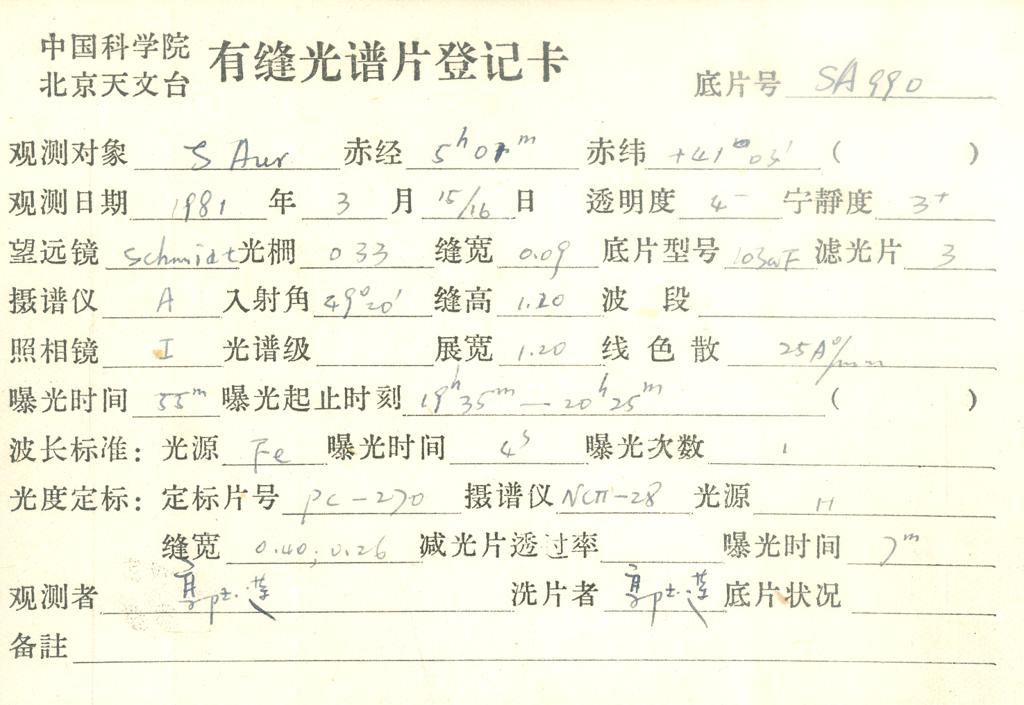 中国科学院
北京天文台
有缝光谱片登记卡
底片号 SA990
观测对象 S Aur 赤经 5h01m 赤纬 +41°03' ( )
观测日期 1981 年 3 月 15/16 日 透明度 4- 宁静度 3+
望远镜 Schmidt 光栅 033 缝宽 0.09 底片型号 103aF 滤光片 3
摄谱仪 A 入射角 49°20' 缝高 1.20 波段
照相镜 I 光谱级 展宽 1.20 线色散 25A°/mm
曝光时间 55m 曝光起止时刻 19h35m — 20h25m ( )
波长标准: 光源 Fe 曝光时间 4s 曝光次数 1
光度定标: 定标片号 PC-270 摄谱仪 ИСП-28 光源 H
缝宽 0.40; 0.26 减光片透过率 曝光时间 7m
观测者 洗片者 底片状况
备註